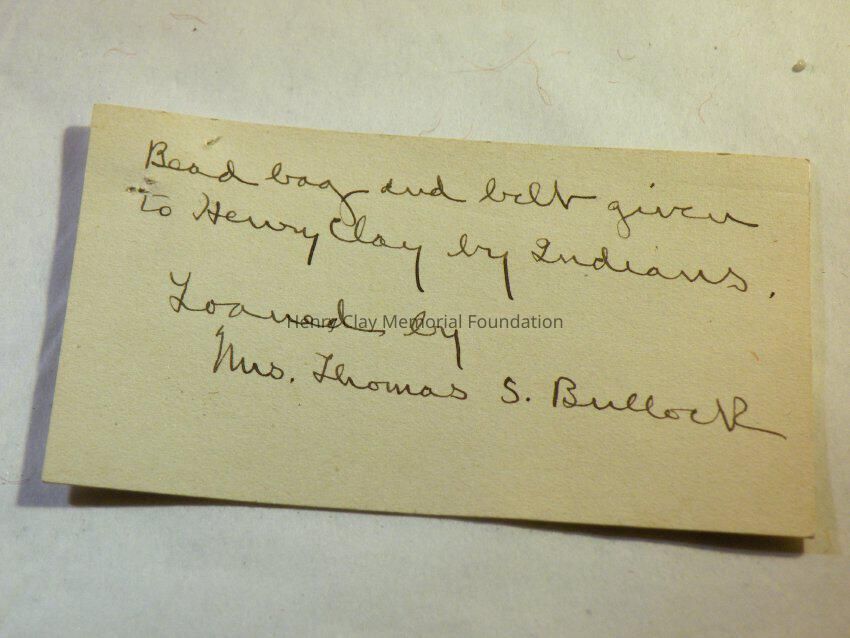 Bead bag and belt given
to Henry Clay by Indians.
Loaned by
Henry Clay Memorial Foundation
Mrs. Thomas S. Bullock